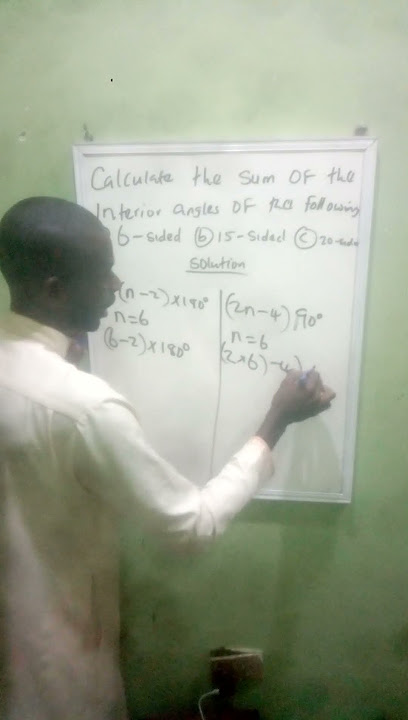 Calculate the sum of the
Interior angles of the following
6-sided (b) 15-sided (c) 20-sided
Solution
(n-2)×180°
n=6
(6-2)×180°
(2n-4)90°
n=6
(2×6)-4)